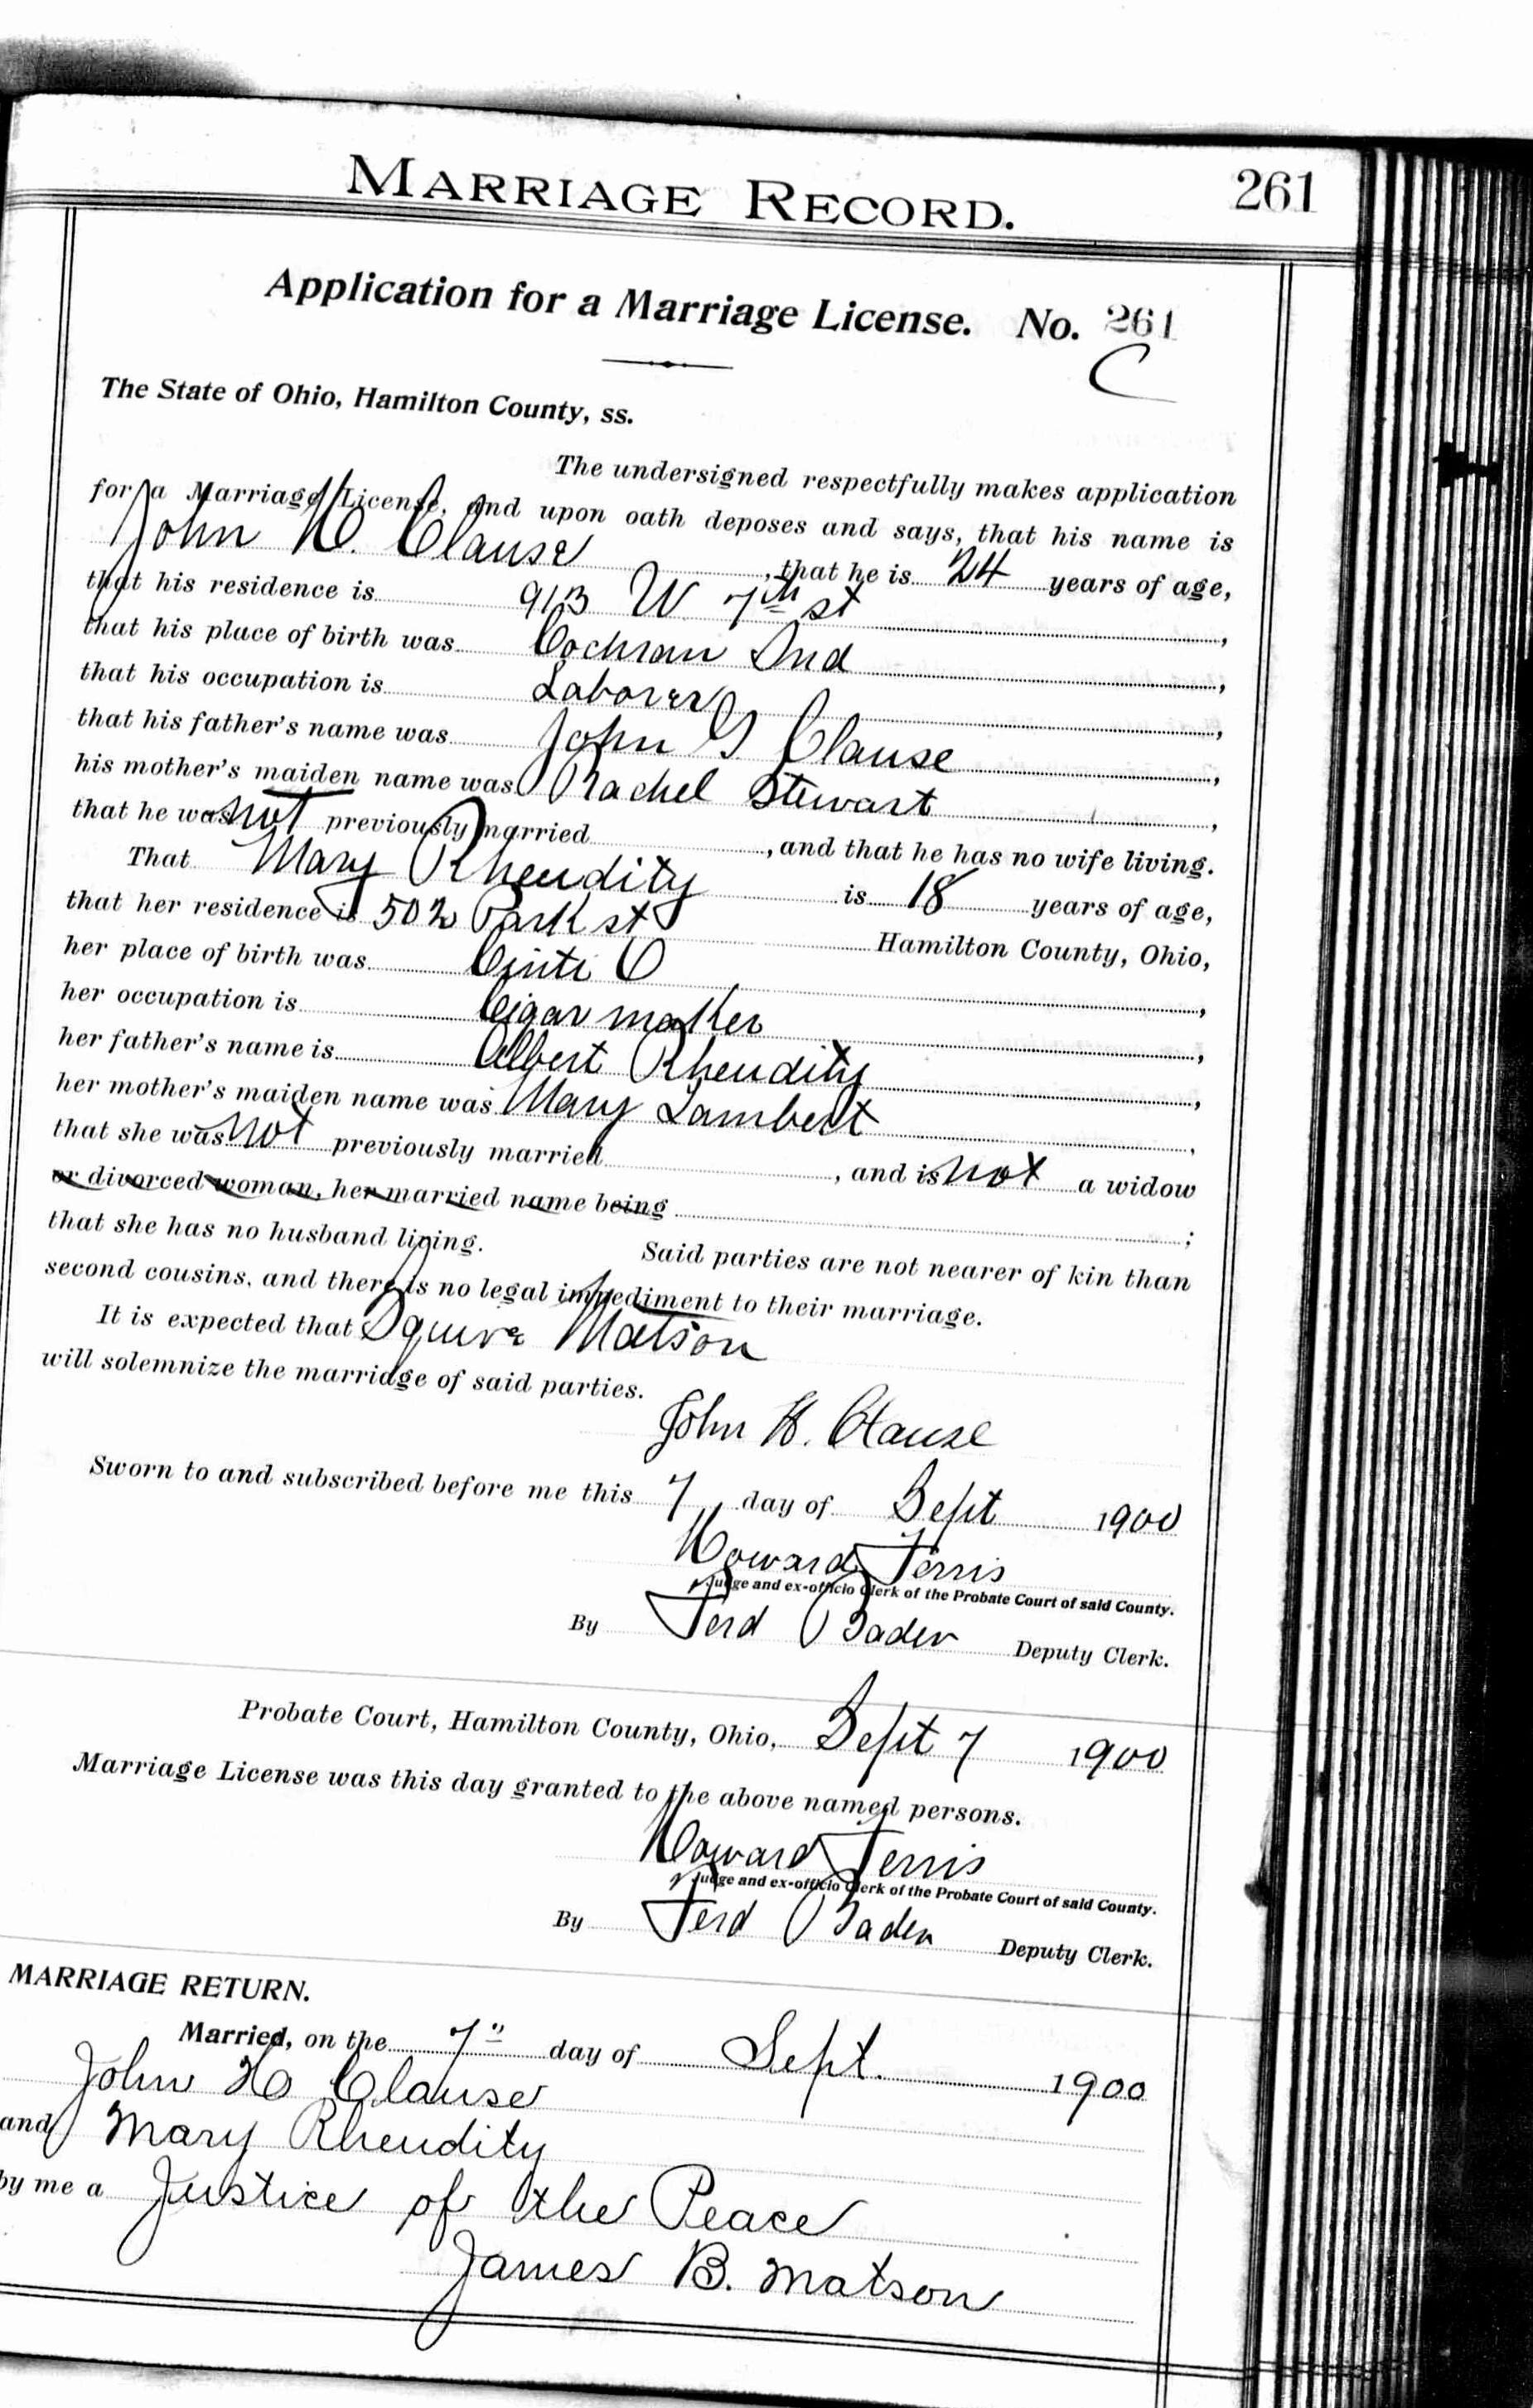 MARRIAGE RECORD. 261
Application for a Marriage License. No. 261
C
The State of Ohio, Hamilton County, ss.
The undersigned respectfully makes application
for a Marriage License, and upon oath deposes and says, that his name is
John H. Clause, that he is 24 years of age,
that his residence is 913 W 7th st,
that his place of birth was Cochran Ind,
that his occupation is Laborer,
that his father's name was John G Clause,
his mother's maiden name was Rachel Stewart,
that he was not previously married, and that he has no wife living.
That Mary Rheudity is 18 years of age,
that her residence is 502 Park st Hamilton County, Ohio,
her place of birth was Cinti O,
her occupation is Cigar maker,
her father's name is Albert Rheudity,
her mother's maiden name was Mary Lambert,
that she was not previously married, and is not a widow
or divorced woman, her married name being ;
that she has no husband living. Said parties are not nearer of kin than
second cousins, and there is no legal impediment to their marriage.
It is expected that Squire Matson
will solemnize the marriage of said parties.
John H. Clause
Sworn to and subscribed before me this 7 day of Sept 1900
Howard Ferris
Judge and ex-officio Clerk of the Probate Court of said County.
By Ferd Bader Deputy Clerk.
Probate Court, Hamilton County, Ohio, Sept 7 1900
Marriage License was this day granted to the above named persons.
Howard Ferris
Judge and ex-officio Clerk of the Probate Court of said County.
By Ferd Bader Deputy Clerk.
MARRIAGE RETURN.
Married, on the 7" day of Sept. 1900
John H Clause
and Mary Rheudity
by me a Justice of the Peace
James B. Matson